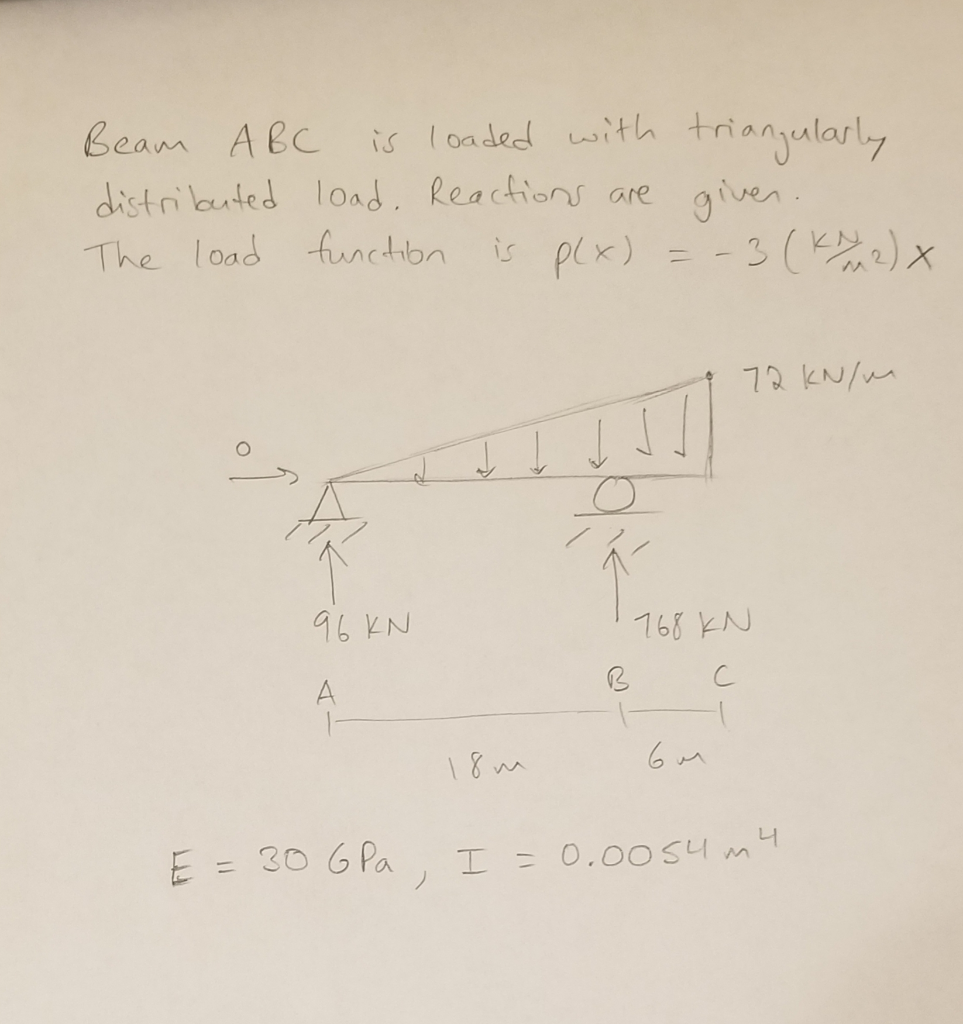 Beam ABC is loaded with triangularly
distributed load. Reactions are given.
The load function is p(x) = -3 (KN/m2) x
72 KN/m
0
96 KN
768 KN
A B C
18m 6m
E = 30 GPa, I = 0.0054 m4